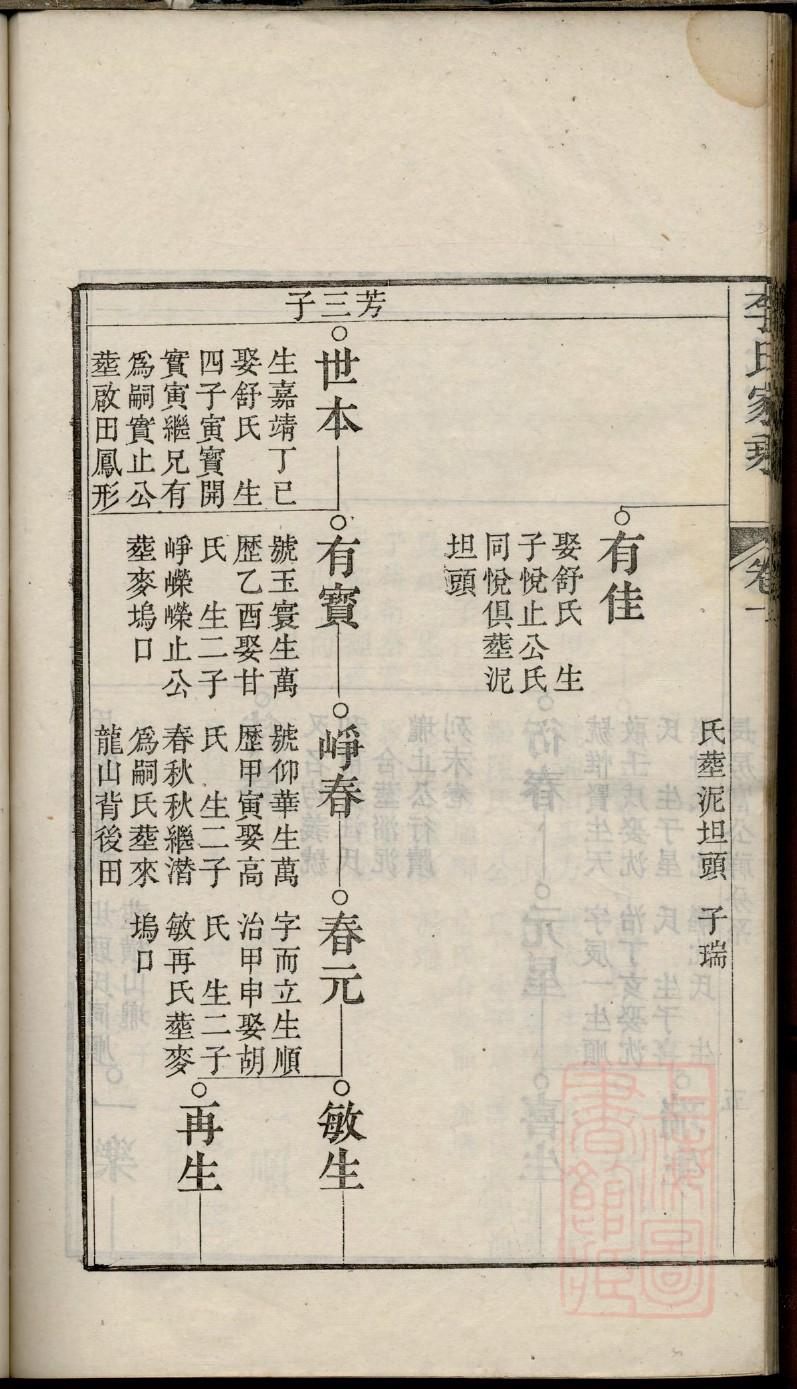 李氏家乘
卷一
氏塟泥坦頭 子瑞
有佳
娶舒氏 生
子悅止公氏
同悅俱塟泥
坦頭
芳三子
世本
生嘉靖丁已
娶舒氏 生
四子寅寳開
實寅繼兄有
爲嗣實止公
塟啟田鳳形
有寳
號玉寰生萬
歷乙酉娶甘
氏 生二子
崢嶸嶸止公
塟麥塢口
崢春
號仰華生萬
歷甲寅娶高
氏 生二子
春秋秋繼潜
爲嗣氏塟來
龍山背後田
春元
字而立生順
治甲申娶胡
氏 生二子
敏再氏塟麥
塢口
敏生
再生